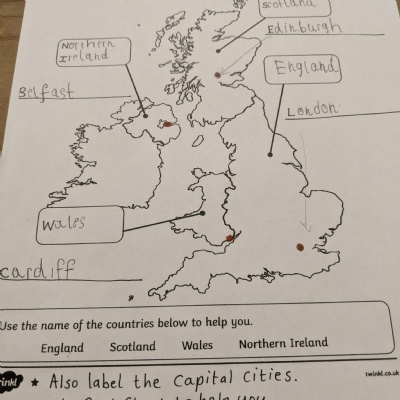 Scotland
Edinburgh
Northern
Ireland
England
Belfast
London
Wales
cardiff
Use the name of the countries below to help you.
England Scotland Wales Northern Ireland
twinkl.co.uk
★ Also label the Capital Cities.
to help you